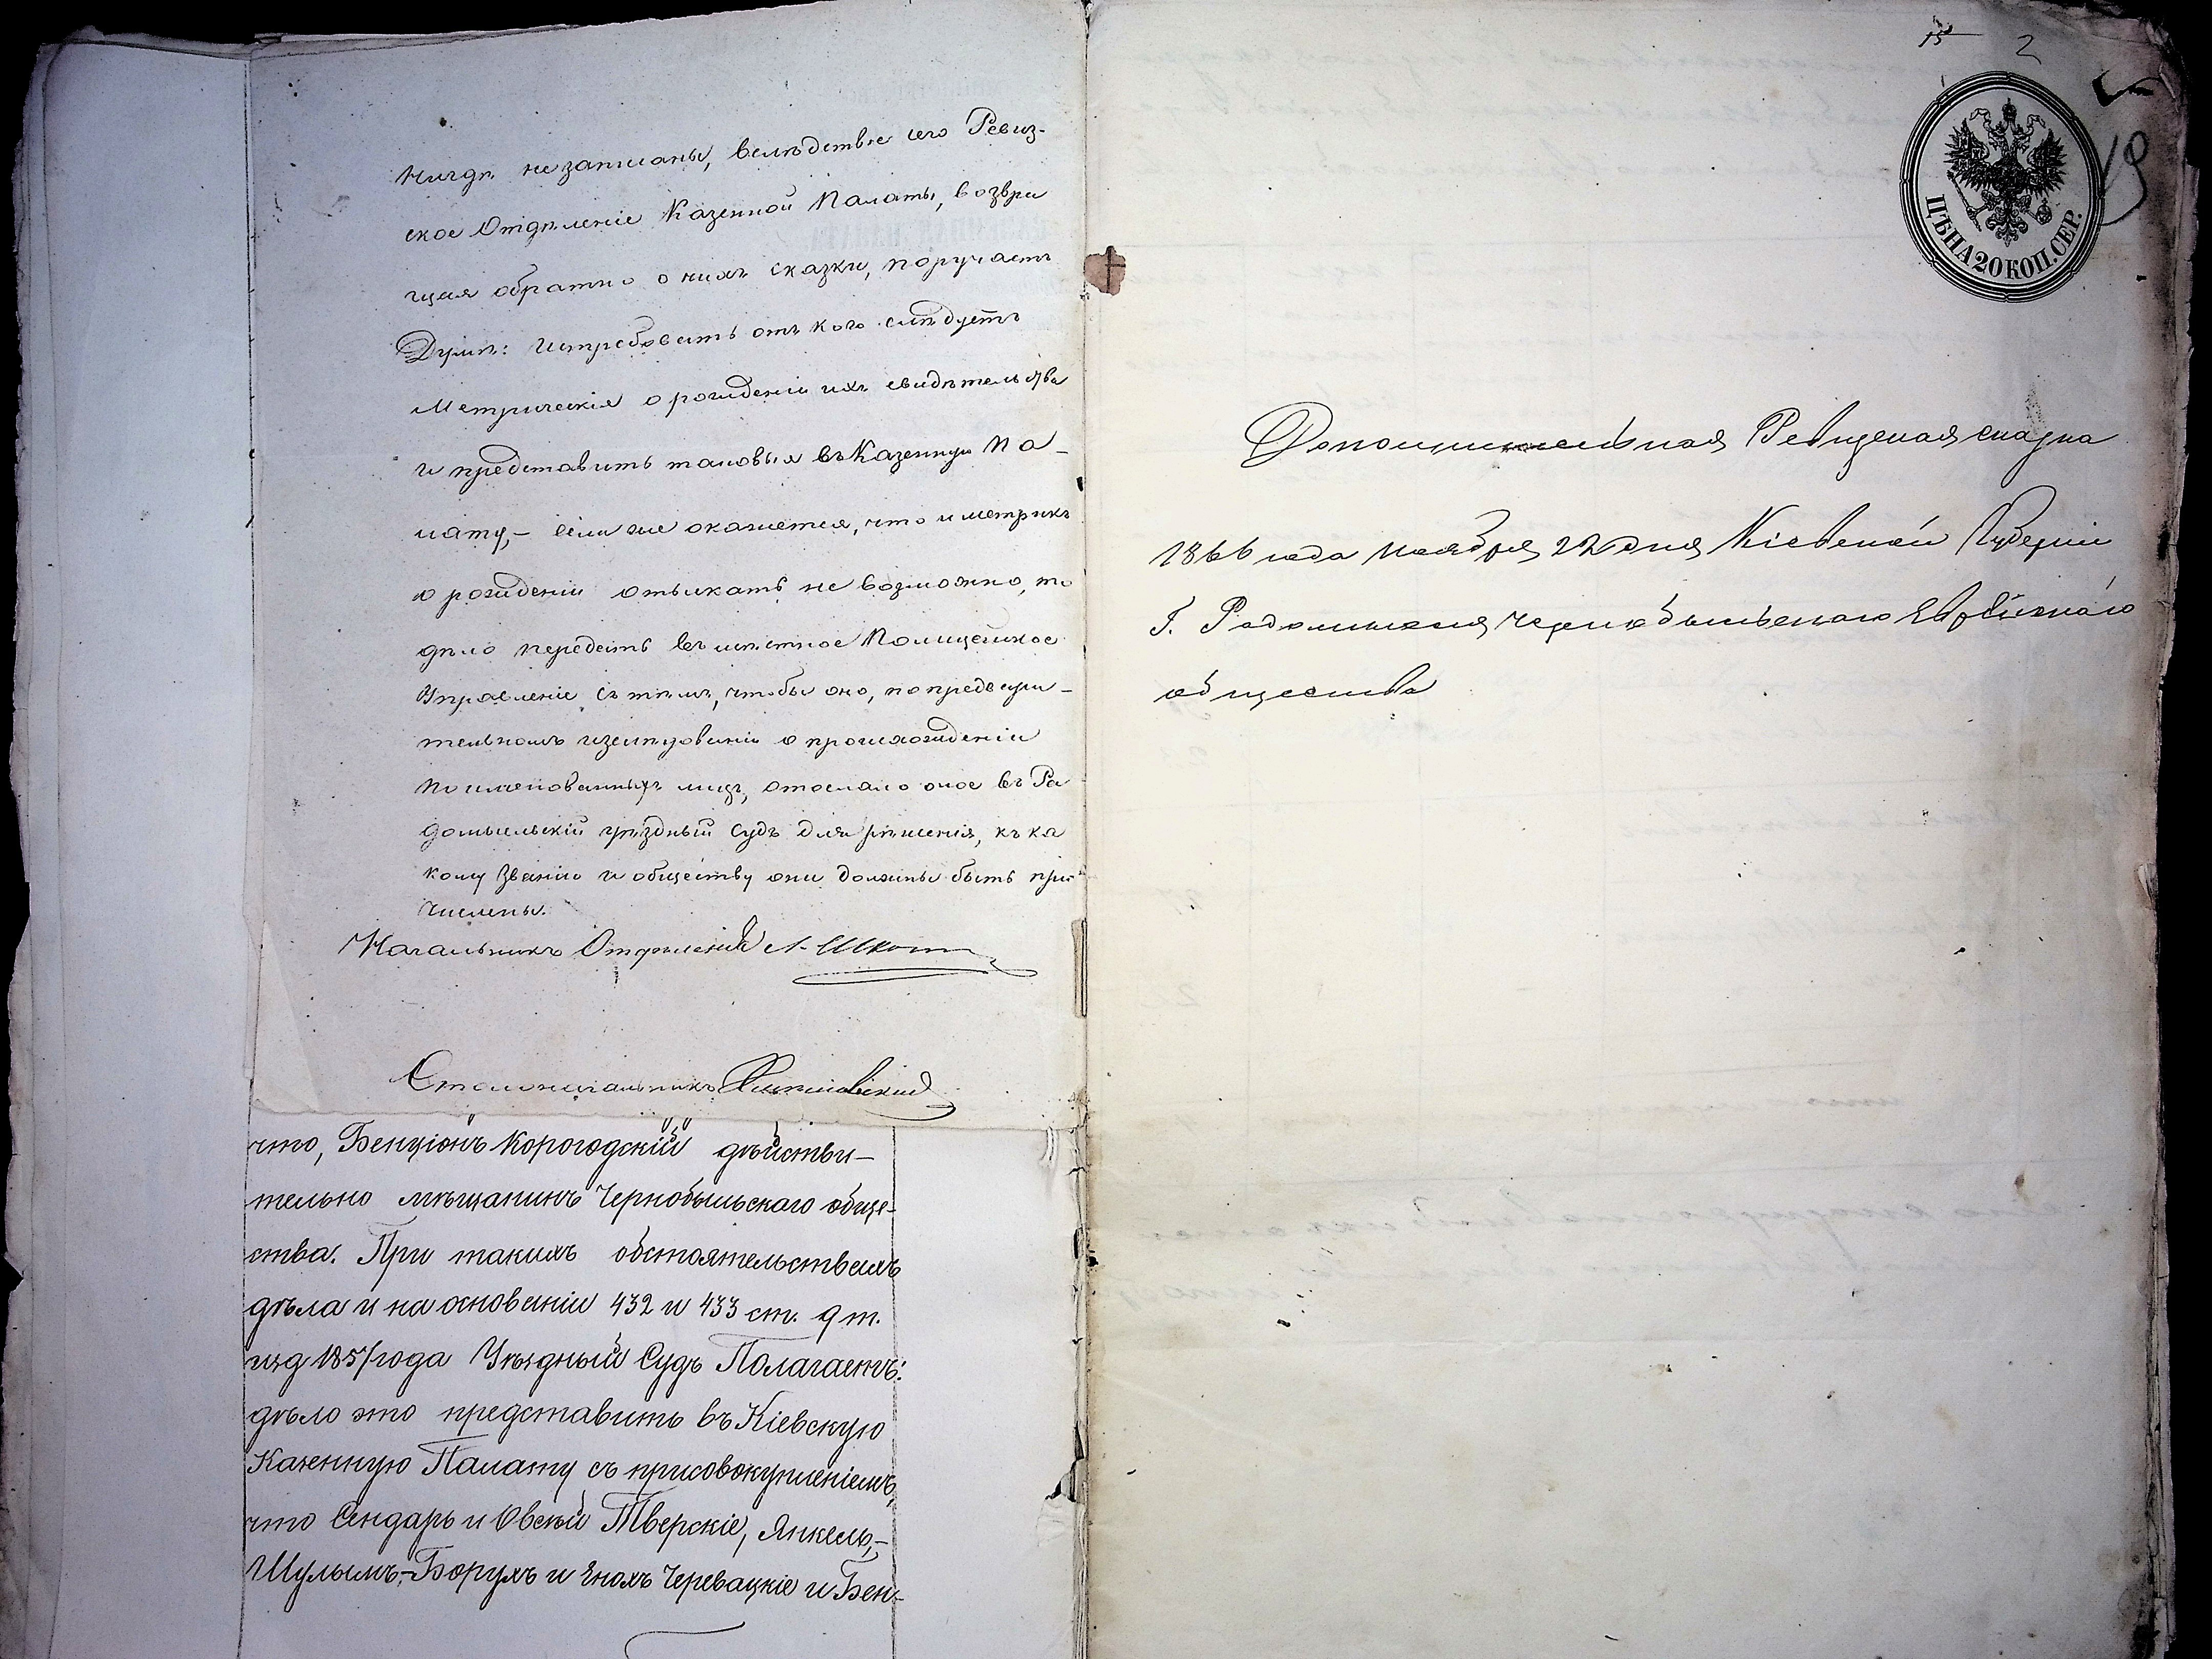 нигдѣ незаписаны, вслѣдствіе чего Ревиз-
ское Отдѣленіе Казенной Палаты, возвра
щая обратно о нихъ сказки, поручаетъ
Думѣ: истребовать отъ кого слѣдуетъ
Метрическія о рожденіи ихъ свидѣтельства
и представить таковыя въ Казенную Па-
лату,- если же окажется, что и метрикъ
о рожденіи отыскать не возможно, то
дѣло передать въ мѣстное Полицейское
Управленіе съ тѣмъ, чтобы оно, по предвари-
тельномъ изслѣдованіи о происхожденіи
поименованныхъ лицъ, отослало оное въ Ра
домысльскій уѣздный Судъ для рѣшенія, къ ка
кому званію и обществу они должны быть при
числены.
Начальникъ Отдѣленія
Столоначальникъ
что, Бенціонъ Корогодскій дѣйстви-
тельно мѣщанинъ Чернобыльскаго обще-
ства. При такихъ обстоятельствахъ
дѣла и на основаніи 432 и 433 ст. 9 т.
изд 1857 года Уѣздный Судъ Полагаетъ:
дѣло это представить въ Кіевскую
Казенную Палату съ присовокупленіемъ,
что Сендарь и Овсѣй Тверскіе, Янкель,-
Шулымъ-Борухъ и Енохъ Черевацкіе и Бен-
15 2
19
ЦѢНА 20 КОП. СЕР.
Дополнительная Ревизская сказка
1866 года Ноября 22 дня Кіевской Губерніи
Г. Радомысля Чернобыльскаго Еврейскаго
общества